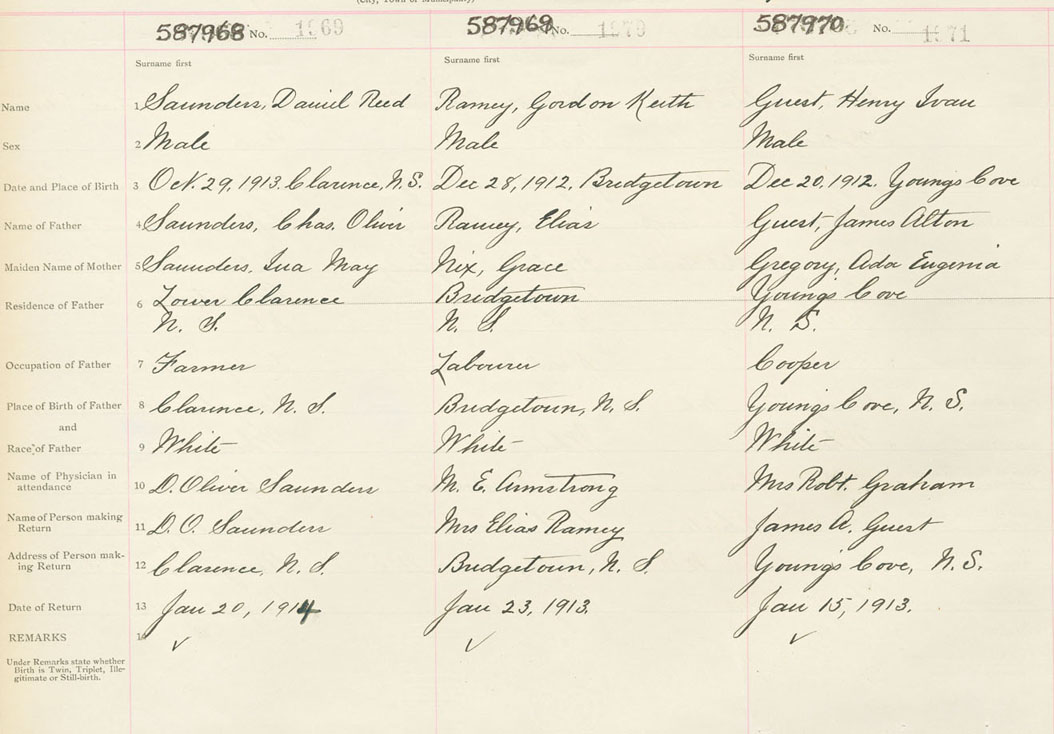 (City, Town or Municipality)
587968 No. 1969
587969 No. 1970
587970 No. 1971
Surname first Surname first Surname first
Name 1 Saunders, Daniel Reed Ramey, Gordon Keith Guest, Henry Ivan
Sex 2 Male Male Male
Date and Place of Birth 3 Oct. 29, 1913. Clarence, N.S. Dec 28, 1912. Bridgetown Dec 20, 1912. Youngs Cove
Name of Father 4 Saunders, Chas. Oliver Ramey, Elias Guest, James Alton
Maiden Name of Mother 5 Saunders, Ina May Nix, Grace Gregory, Ada Eugenia
Residence of Father 6 Lower Clarence Bridgetown Young's Cove
N. S. N. S. N. S.
Occupation of Father 7 Farmer Labourer Cooper
Place of Birth of Father 8 Clarence, N. S. Bridgetown, N. S. Young's Cove, N. S.
and
Race of Father 9 White White White
Name of Physician in
attendance 10 D. Oliver Saunders M. E. Armstrong Mrs Robt. Graham
Name of Person making
Return 11 D. O. Saunders Mrs Elias Ramey James A. Guest
Address of Person mak-
ing Return 12 Clarence, N. S. Bridgetown, N. S. Young's Cove, N. S.
Date of Return 13 Jan 20, 1914 Jan 23, 1913. Jan 15, 1913.
REMARKS 14 ✓ ✓ ✓
Under Remarks state whether
Birth is Twin, Triplet, Ille-
gitimate or Still-birth.